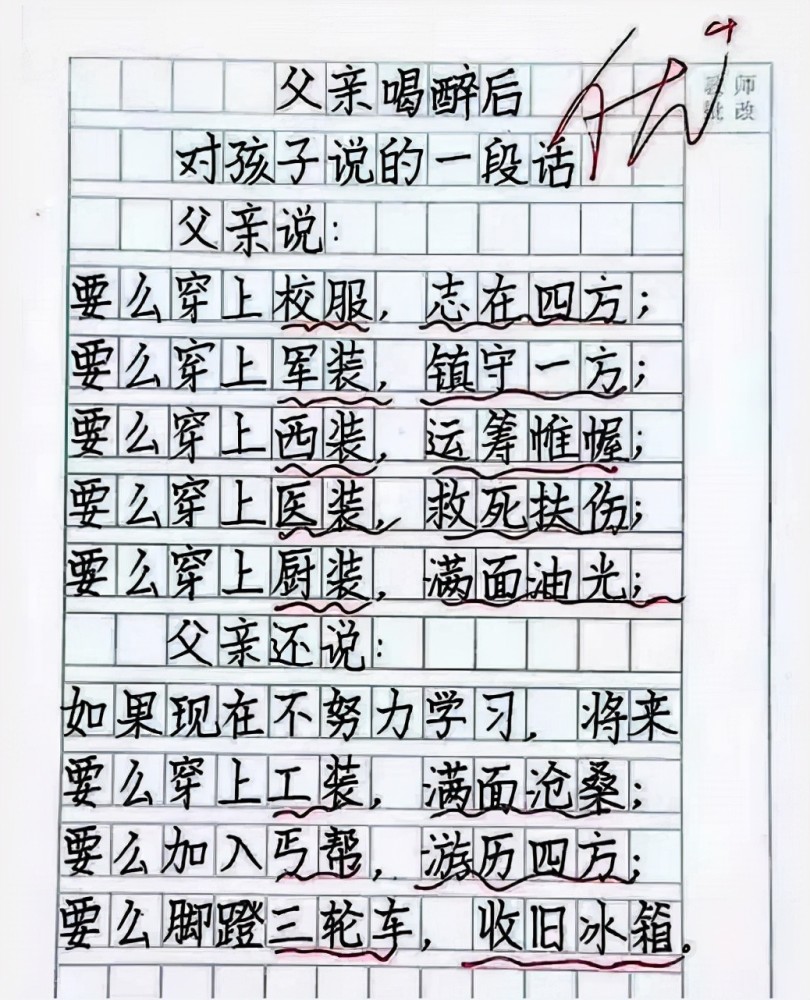 父亲喝醉后
对孩子说的一段话
优
教师
批改
父亲说:
要么穿上校服,志在四方;
要么穿上军装,镇守一方;
要么穿上西装,运筹帷幄;
要么穿上医装,救死扶伤;
要么穿上厨装,满面油光;
父亲还说:
如果现在不努力学习,将来
要么穿上工装,满面沧桑;
要么加入丐帮,游历四方;
要么脚蹬三轮车,收旧冰箱。